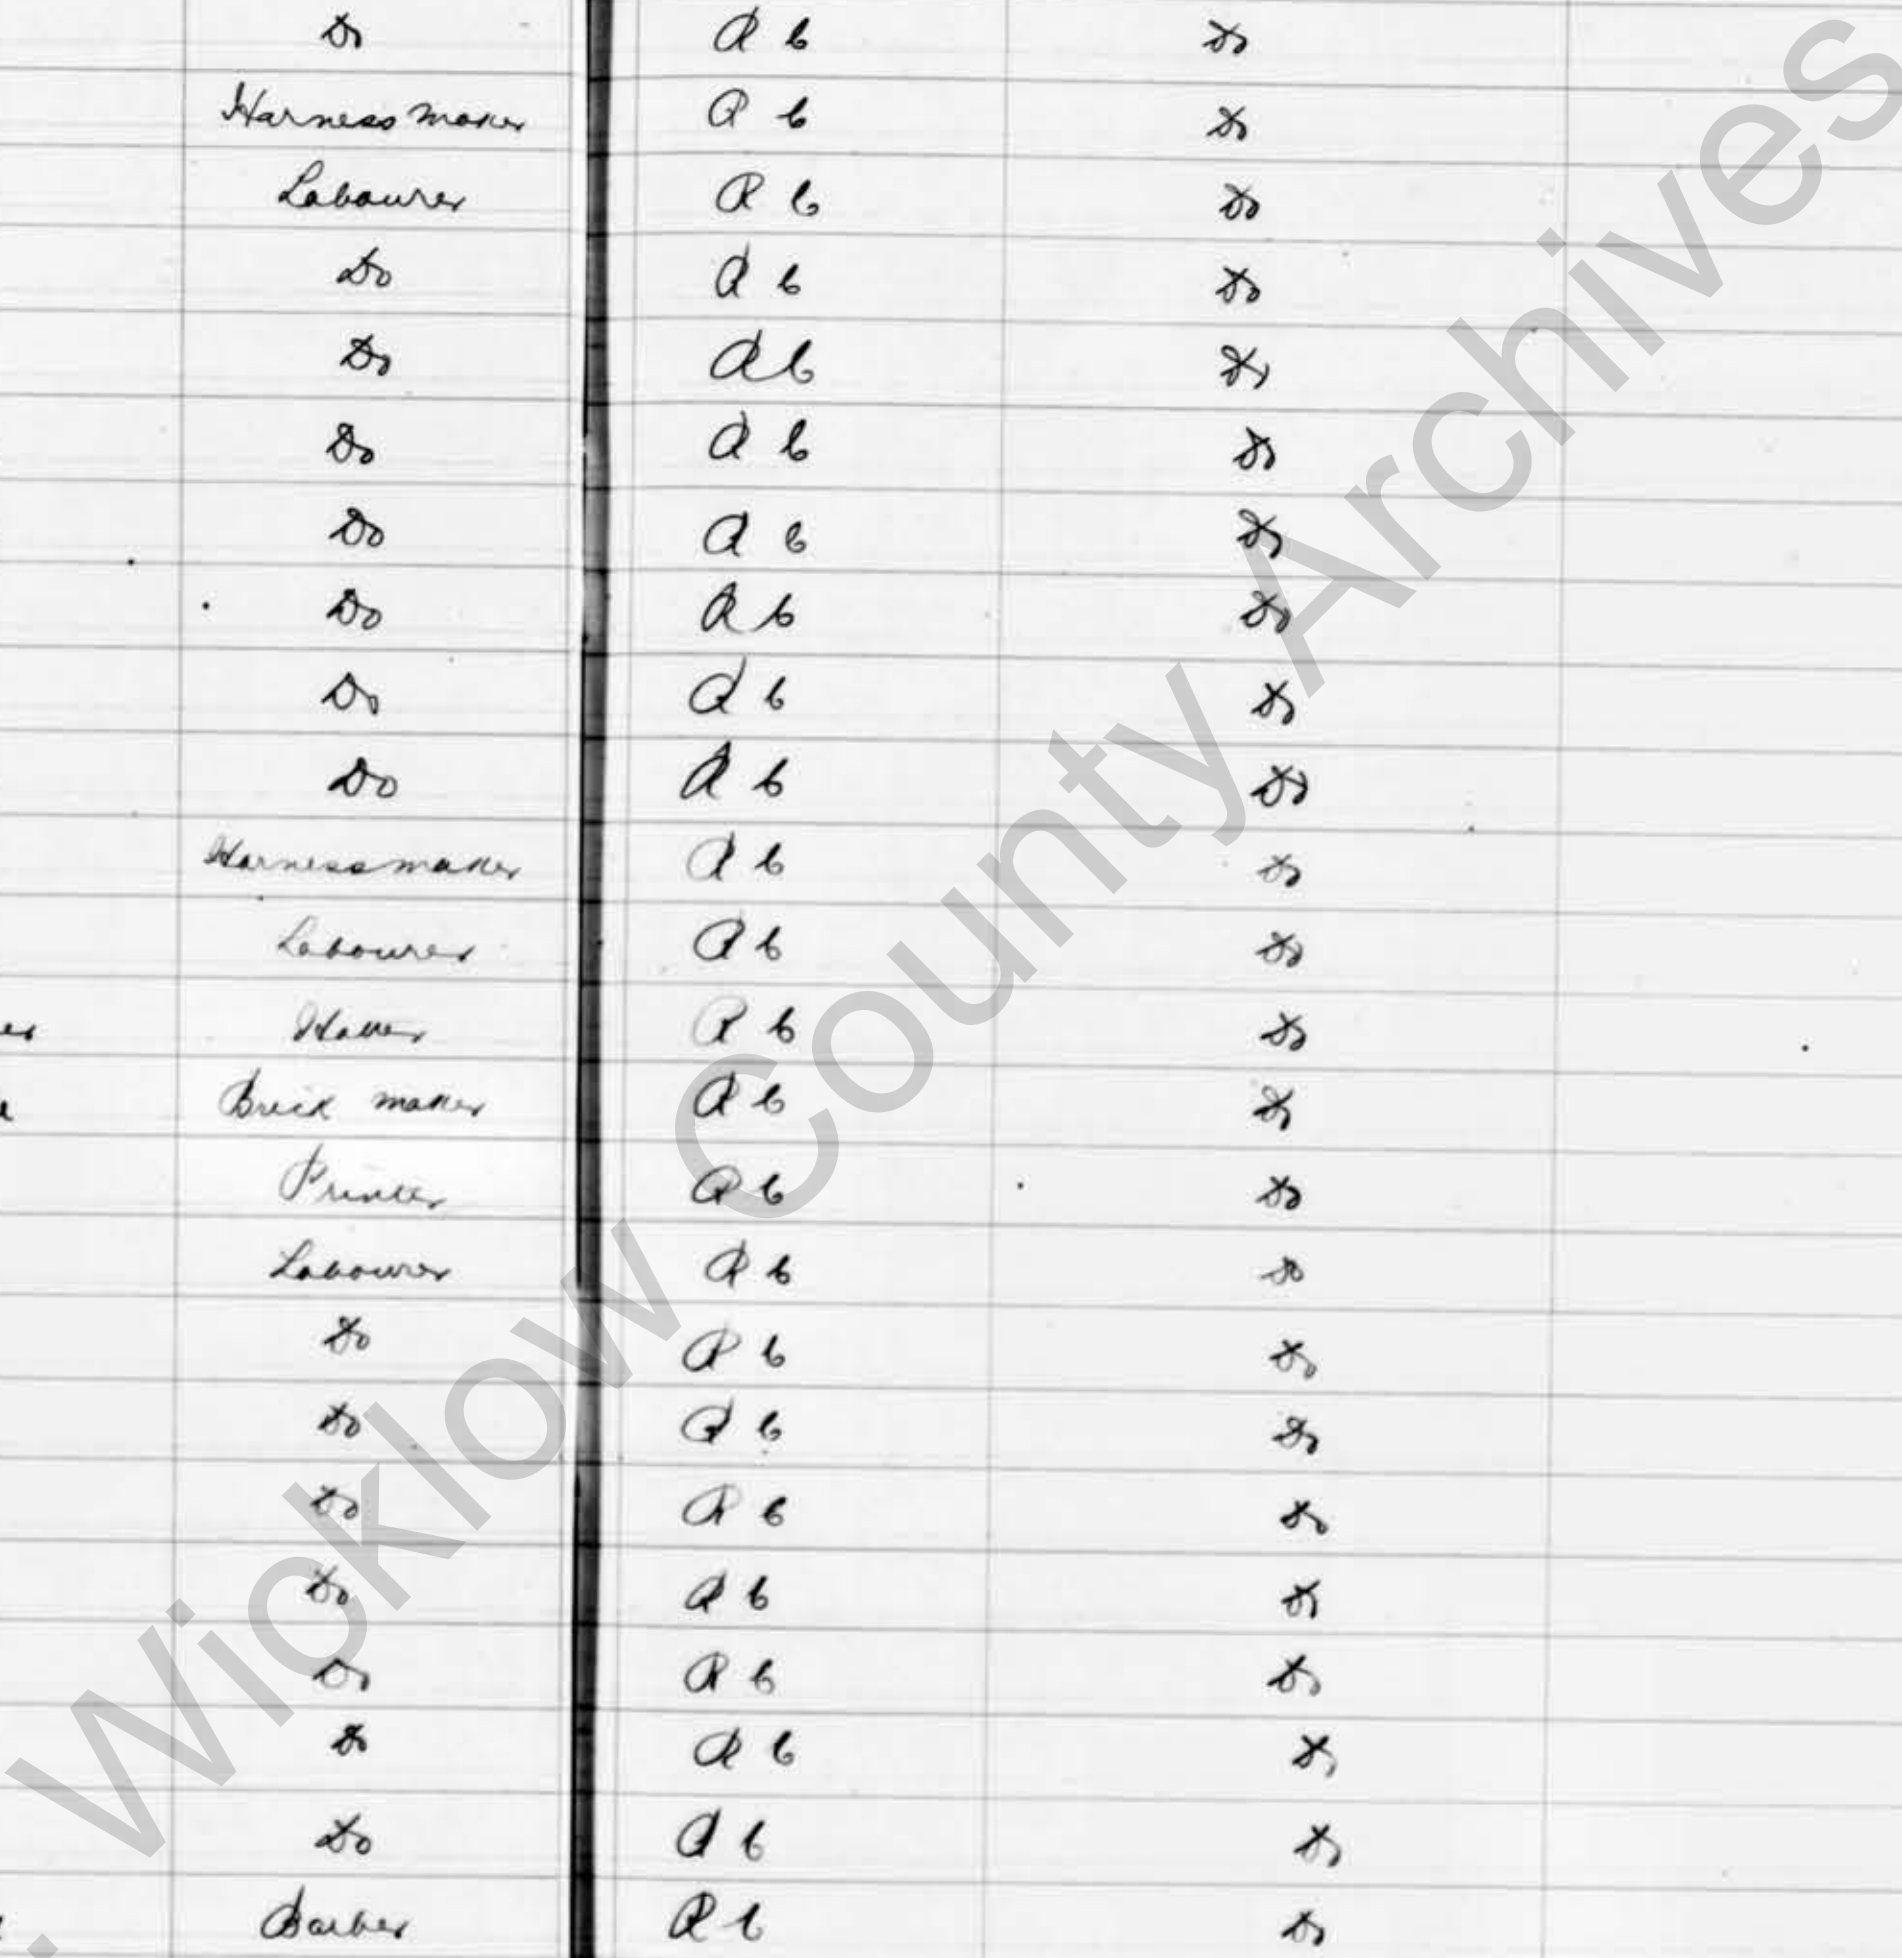 Do R C Do
Harness maker R C Do
Labourer R C Do
Do R C Do
Do R C Do
Do R C Do
Do R C Do
Do R C Do
Do R C Do
Do R C Do
Harness maker R C Do
Labourer R C Do
R C Do
Brick maker R C Do
Printer R C Do
Labourer R C Do
Do R C Do
Do R C Do
Do R C Do
Do R C Do
Do R C Do
Do R C Do
Do R C Do
Barber R C Do
Wicklow County Archives